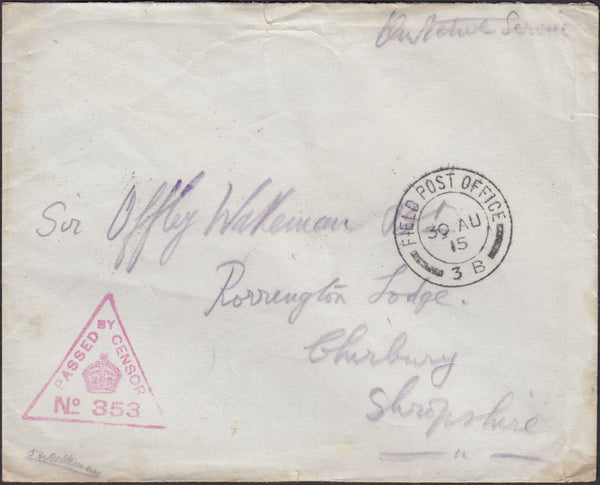 On Active Service
Sir Offley Wakeman Bt.
Rorrington Lodge.
Chirbury
Shropshire
FIELD POST OFFICE
30 AU
15
3 B
PASSED BY CENSOR
No 353